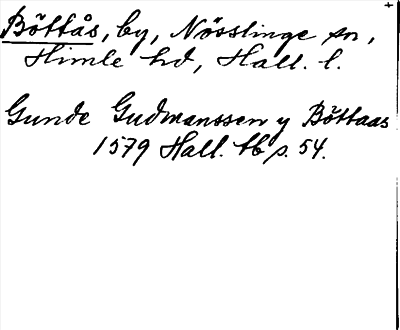 Böttås, by, Nösslinge sn,
Himle hd, Hall. l.
Gunde Gudmanssen y Böttaas
1579 Hall. tb s. 54.